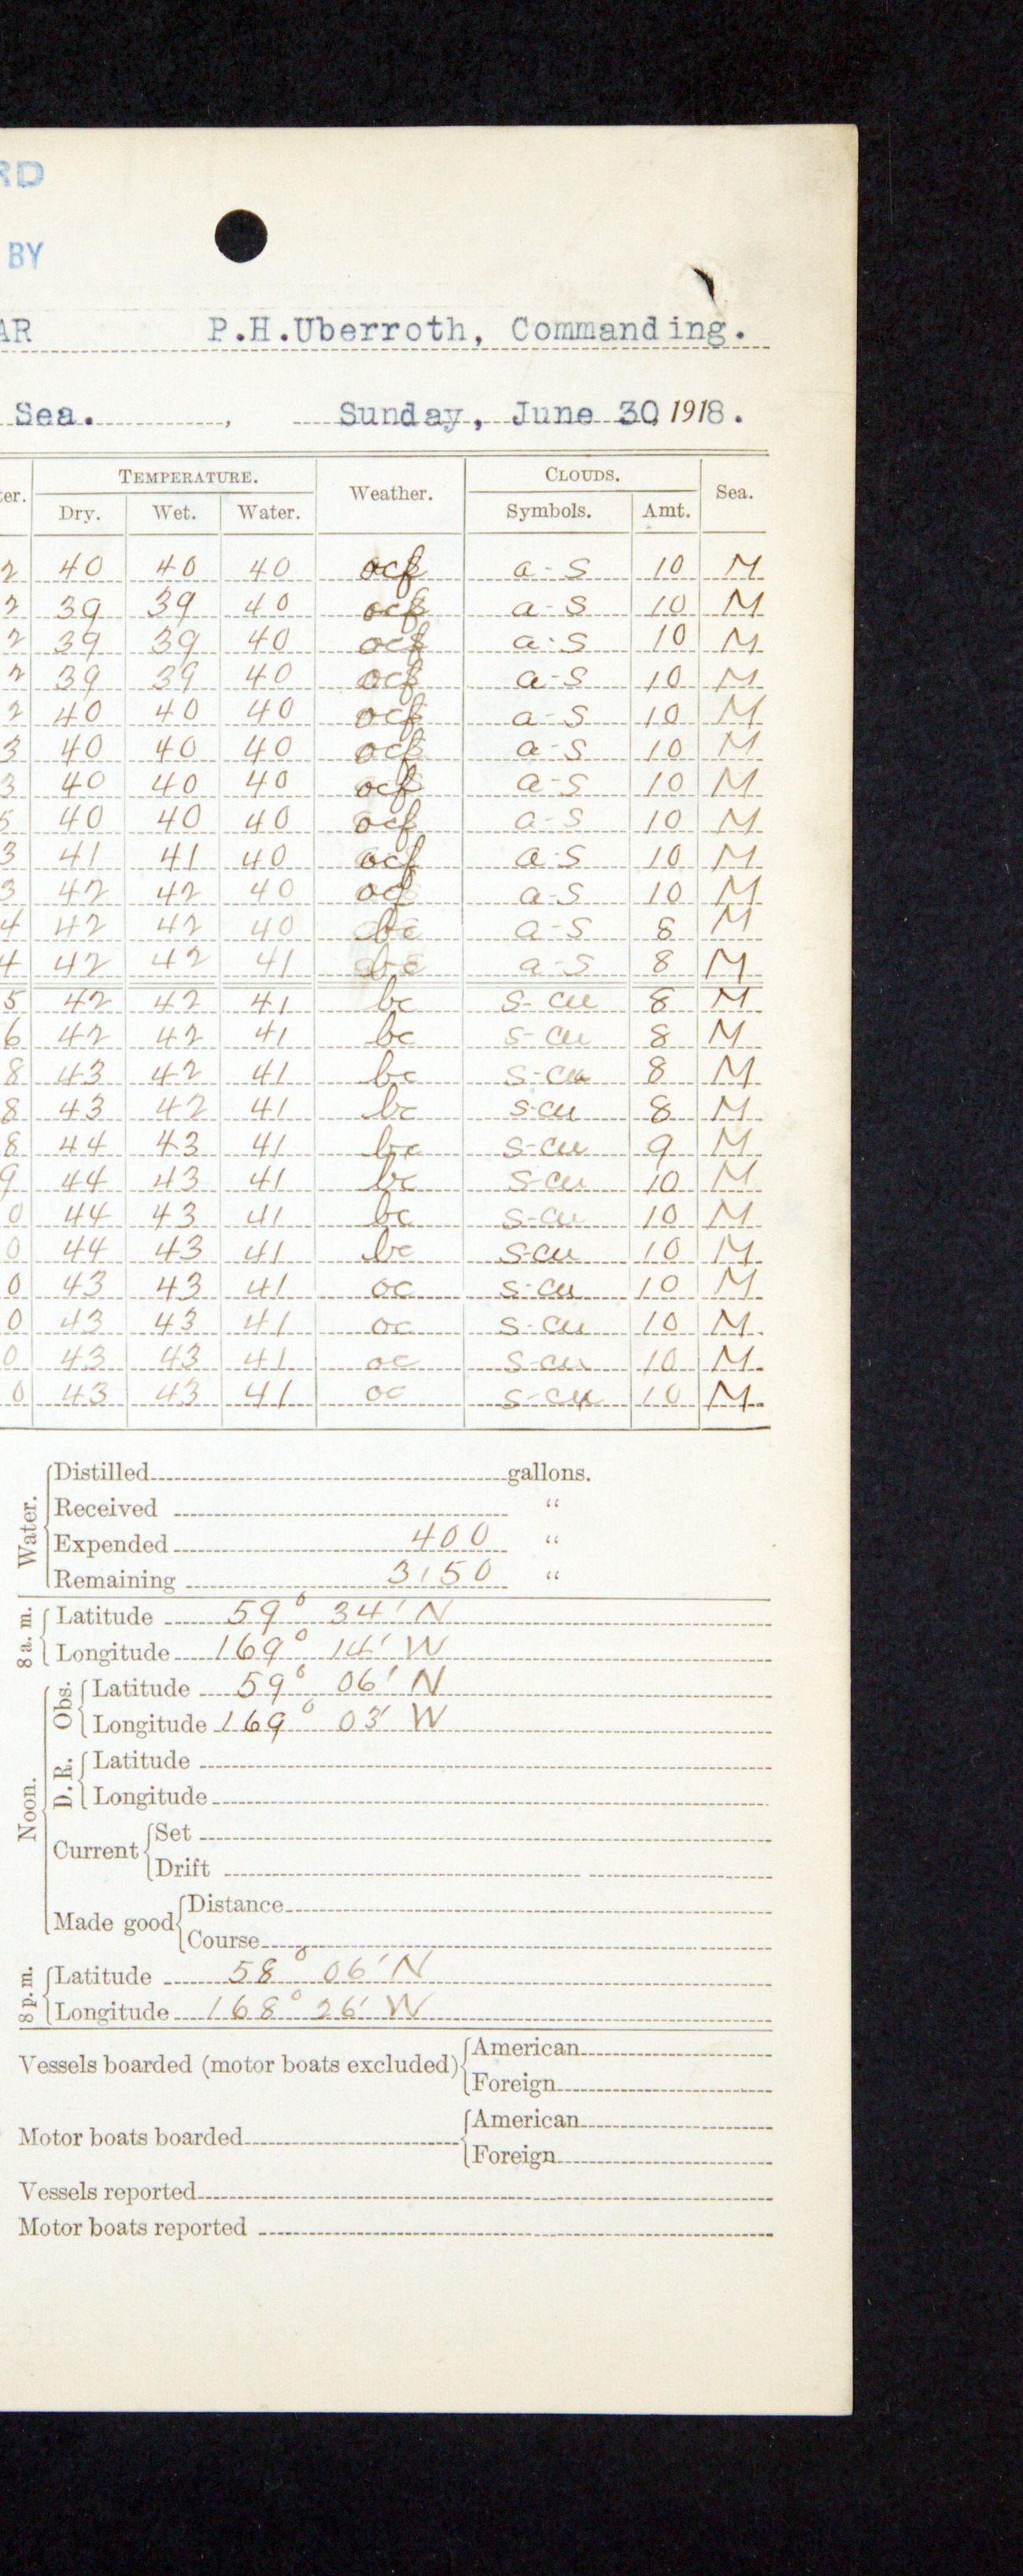 RD
BY
AR P.H.Uberroth, Commanding.
Sea. , Sunday, June 30, 1918.
TEMPERATURE. CLOUDS.
er. Dry. Wet. Water. Weather. Symbols. Amt. Sea.
2 40 40 40 ocf a-s 10 M
2 39 39 40 ocf a-s 10 M
2 39 39 40 ocf a-s 10 M
2 39 39 40 ocf a-s 10 M
2 40 40 40 ocf a-s 10 M
3 40 40 40 ocf a-s 10 M
3 40 40 40 ocf a-s 10 M
5 40 40 40 ocf a-s 10 M
3 41 41 40 ocf a-s 10 M
3 42 42 40 ocf a-s 10 M
4 42 42 40 bc a-s 8 M
4 42 42 41 bc a-s 8 M
5 42 42 41 bc s-cu 8 M
6 42 42 41 bc s-cu 8 M
8 43 42 41 bc s-cu 8 M
8 43 42 41 bc s-cu 8 M
8 44 43 41 bc s-cu 9 M
9 44 43 41 bc s-cu 10 M
0 44 43 41 bc s-cu 10 M
0 44 43 41 bc s-cu 10 M
0 43 43 41 oc s-cu 10 M
0 43 43 41 oc s-cu 10 M
0 43 43 41 oc s-cu 10 M
0 43 43 41 oc s-cu 10 M
Water.
Distilled gallons.
Received "
Expended 400 "
Remaining 3150 "
8 a. m.
Latitude 59° 34' N
Longitude 169° 14' W
Noon.
Obs.
Latitude 59° 06' N
Longitude 169° 03' W
D. R.
Latitude
Longitude
Current
Set
Drift
Made good
Distance
Course
8 p. m.
Latitude 58° 06' N
Longitude 168° 26' W
Vessels boarded (motor boats excluded)
American
Foreign
Motor boats boarded
American
Foreign
Vessels reported
Motor boats reported